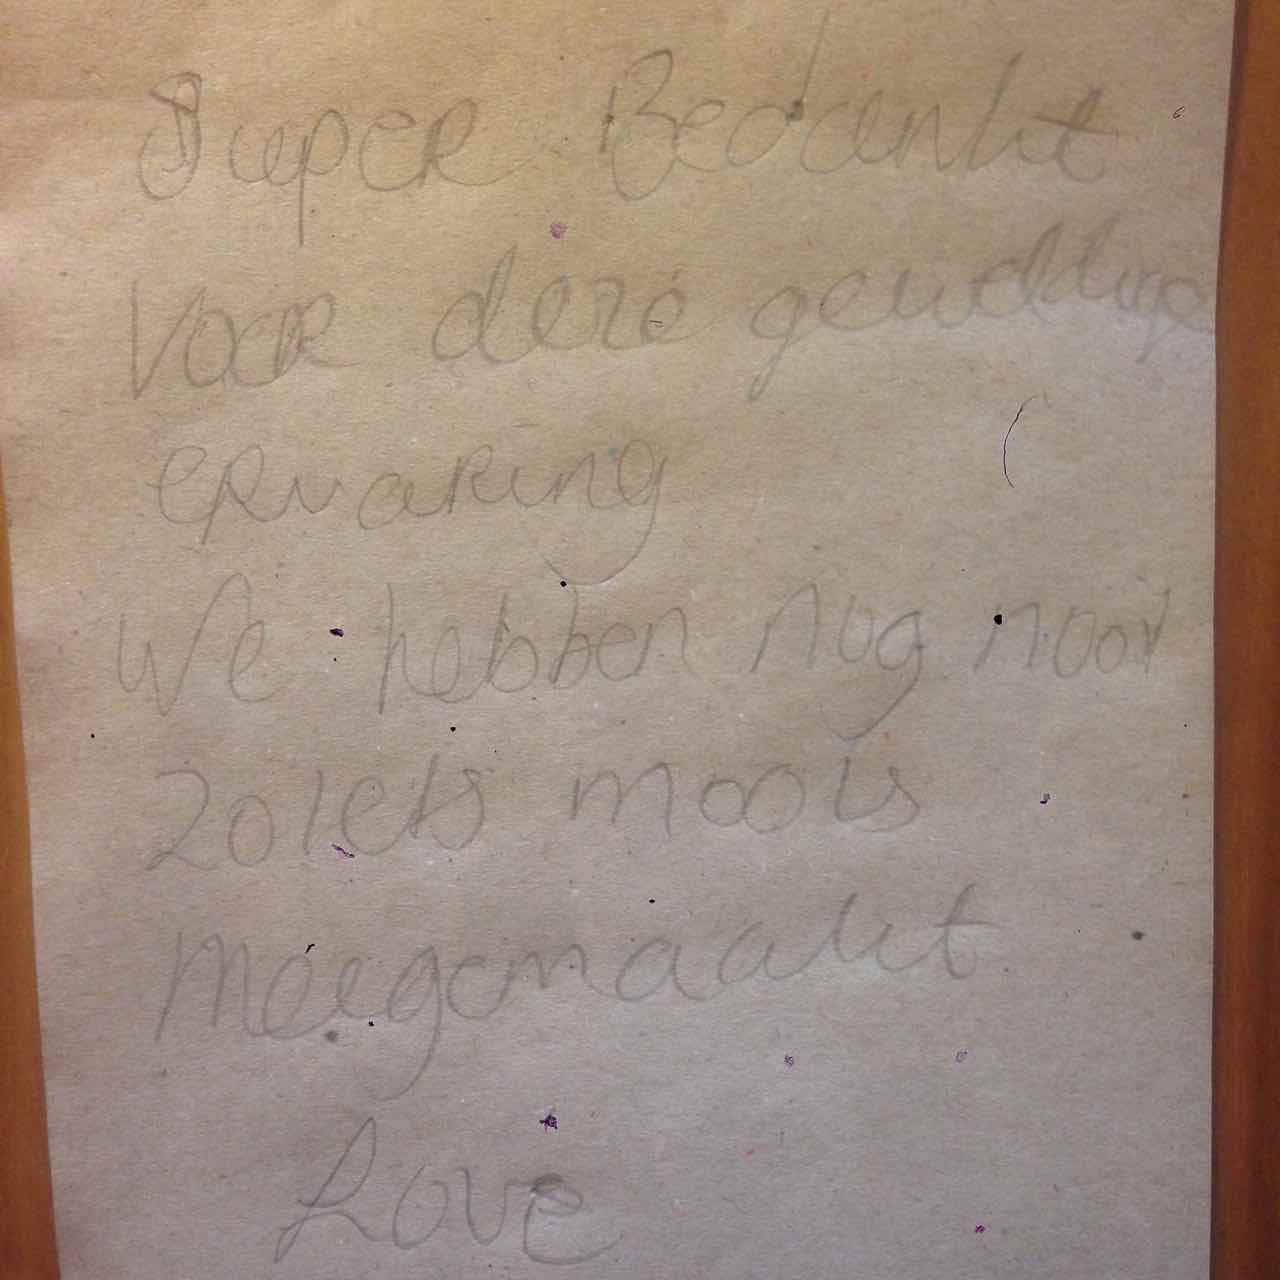 Super Bedankt
Voor deze geweldige
ervaring
We hebben nog nooit
zoiets moois
meegemaakt
Love